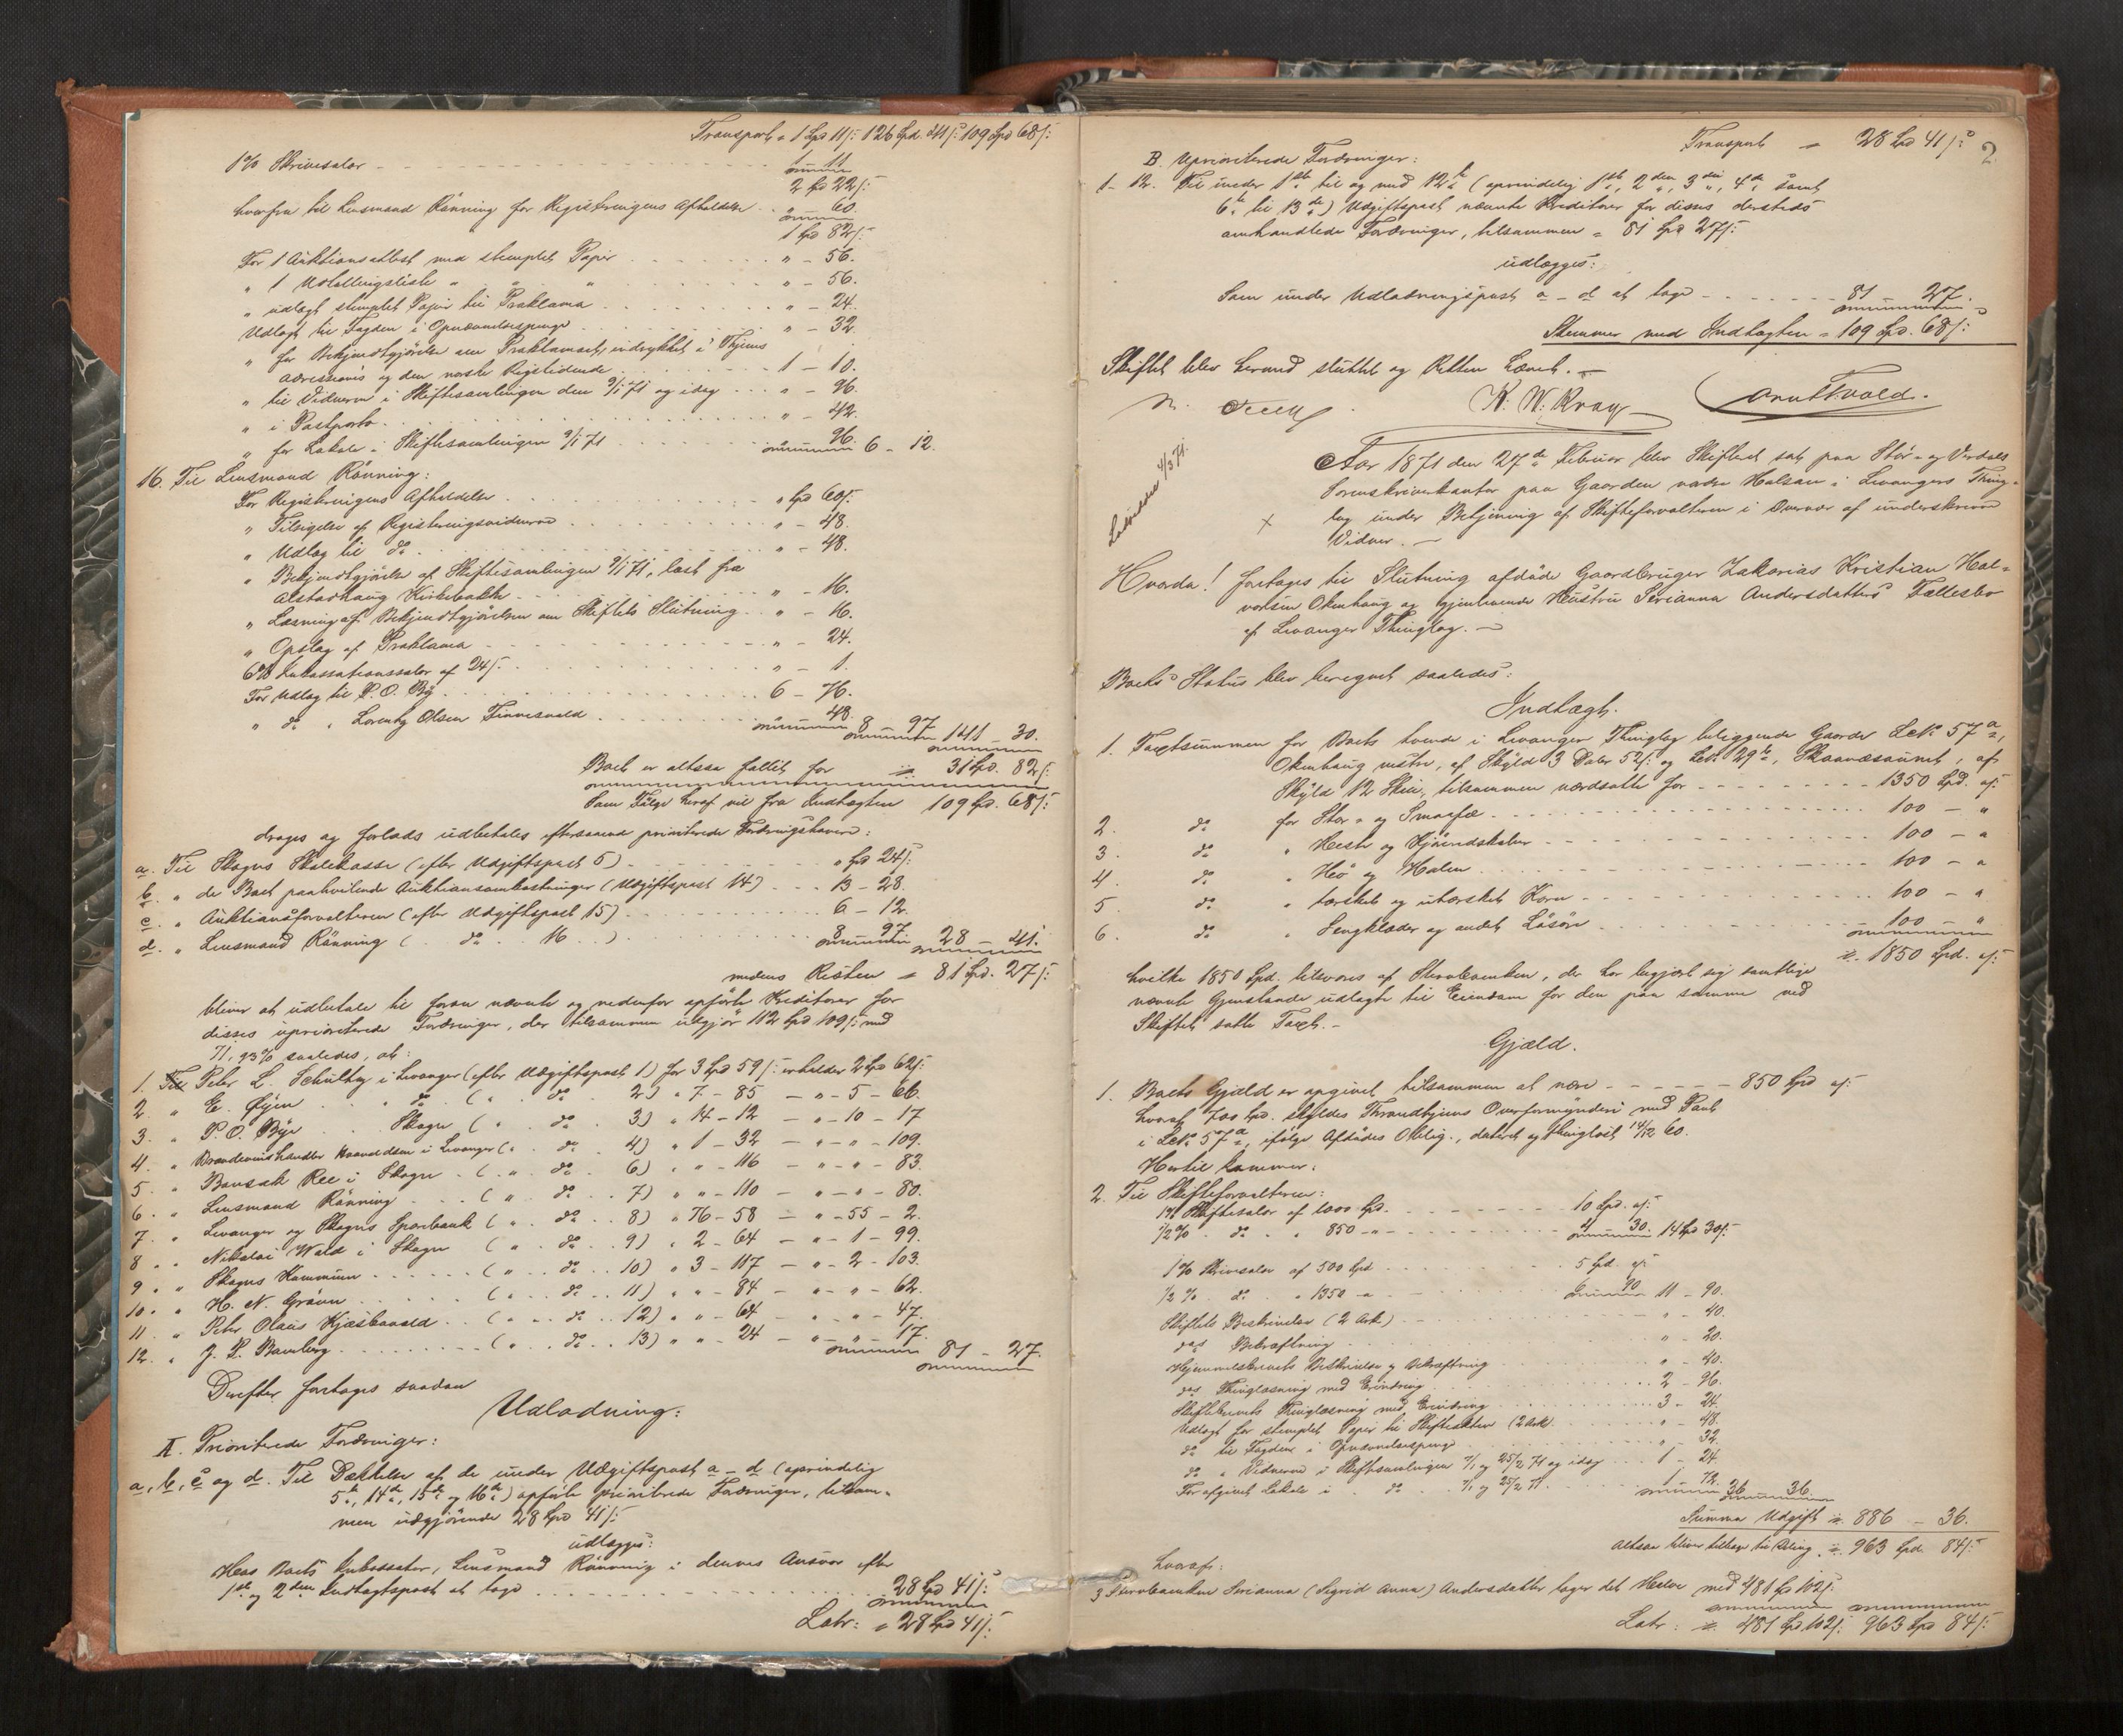 Transport = 1 Spd 11 s: 126 Spd. 41 s: 109 Spd 68 s:
1% Skrivesalær - - - 1 - 11
2 Spd 22 s:
hvorfra til Lensmand Rönning for Registreringens Afholdelse . . " - 60.
1 Spd 82 s:
For 1 Auktionsattest med stemplet Papir . . . " - 56.
" 1 Udstillingsliste " " " . . . " - 56.
" udlagt stemplet Papir til Proklama . . . " - 24.
Udlagt til Fogden i Opnævnelsespenge . . . " - 32.
" for Bekjendtgjörelse om Proklamaets indrykket i Thjems
adresseavis og den norske Rigstidende . . . 1 - 10.
" til Vidnerne i Skiftesamlingen den 9/1 71 og idag . . . " - 96.
" i Postporto . . . " - 42.
" for Lokale i Skiftesamlingen 9/1 71 . . . 96. 6 - 12.
16. Til Lensmand Rönning:
For Registreringens Afholdelse . . . " Spd 60 s:
" Tilsigelse af Registreringsvidnerne . . . " - 48.
" Udlæg til do . . . " - 48.
" Bekjendtgjörelse af Skiftesamlingen 9/1 71, læst fra
Alstadhaug Kirkebakke . . . " - 16.
" Læsning af Bekjendtgjörelsen om Skiftets Slutning . . " - 16.
" Opslag af Proklama . . . " - 24.
6% Inkassationssalær af 24 s: . . . " - 1.
For Udlæg til P. O. By . . . 6 - 76.
" do " Lorentz Olsen Finnesvald . . . 48. 8 - 97 141 - 30.
Boet er altsaa fallit for = 31 Spd. 82 s:
Som Fölge heraf vil fra Indtægten 109 Spd. 68 s:
drages og forlods udbetales eftersaavnd prioriterede Fordringshavere:
a. Til Skogns Skolekasse (efter Udgiftspost 5) . . . " Spd 24 s:
b. " de Boet paahvilende Auktionsomkostninger (Udgiftspost 14) . . . 13 - 28.
c. " Auktionsforvalteren (efter Udgiftspost 15) . . . 6 - 12.
d. " Lensmand Rönning ( . do . 16 . . ) 8 - 97 28 - 41.
medens Resten = 81 Spd. 27 s:
bliver at udbetale til foran nævnte og nedenfor opförte Kreditorer for
disses uprioriterede Fordringer, der tilsammen udgjör 112 Spd 109 s: med
71,93% saaledes, at:
1. Til Peter L. Schultz i Levanger (efter Udgiftspost 1) for 3 Spd 59 s: erholder 2 Spd 62 s:
2. " E. Öyen . . do . ( " . do . 2) " 7 - 85 - " - 5 - 66.
3. " P. O. Bye . . Skogn ( " . do . 3) " 14 - 12 - " - 10 - 17
4. " Brændevinshandler i Levanger ( " . do . 4) " 1 - 32 - " - " - 109.
5. " Ree i Skogn . ( " . do . 6) " " - 116 - " - " - 83.
6. " Lensmand Rönning . . . ( " . do . 7) " " - 110 - " - " - 80.
7. " Levanger og Skogns Sparebank ( " . do . 8) " 76 - 58 - " - 55 - 2.
8 . " Nikolai Wold i Skogn ( " . do . 9) " 2 - 64 - " - 1 - 99.
9 . " Skogns Kommune . . . ( " . do . 10) " 3 - 117 - " - 2 - 103.
10 . " H. N. Gröün . . . ( " . do . 11) " " - 84 - " - " - 62.
11. " Peter Olaus Kjæsbovald . . ( " . do . 12) " " - 64 - " - " - 47.
12. " J. P. Bamberg . . . ( " . do . 13) " " - 24 - " - " - 17. 81 - 27.
Derefter foretages saadan
Udlodning:
A. Prioriterede Fordringer:
a, b, c og d. Til Dækkelse af de under Udgiftspost a - d (oprindelig
5te, 14de, 15de og 16de) opförte prioriterede Fordringer, tilsam-
men udgjörende 28 Spd 41 s:
udlægges:
Hos Boets Inkassator, Lensmand Rönning i dennes Ansvar efter
1ste og 2den Indtægtspost at tage . . . 28 Spd 41 s:
Latr: = 28 Spd 41 s:
2.
Transport = 28 Spd 41 s:
B. Uprioriterede Fordringer:
1 - 12. Til under 1ste til og med 12te (oprindelig 1ste, 2den, 3die, 4de samt
6te til 13de) Udgiftspost nævnte Kreditorer for disses dersteds
omhandlede Fordringer, tilsammen = 81 Spd 27 s:
udlægges:
Som under Udlodningspost a - d at tage - - - 81 - 27.
Stemmer med Indtægten = 109 Spd. 68 s:
Skiftet blev herved sluttet og Retten hævet. -
K. W. Kray
4/3 71.
Aar 1871 den 27de Februar blev Skifteret sat paa Stör- og Værdals
Sorenskriverkontor paa Gaarden nedre Halsan i Levangers Thing-
lag under Betjening af Skifteforvalteren i Overvær af underskrevne
Vidner. -
Hvorda! foretoges til Slutning afdöde Gaardbruger Zakarias Kristian Hal-
vorsen Okenhaug og gjenlevende Hustru Serianna Andersdatters Fællesbo
af Levanger Thinglag. -
Boets Status blev beregnet saaledes:
Indtægt.
1. Taxtsummen for Boets tvende i Levanger Thinglag beliggende Gaarde LeNo 57a,
Okenhaug vestre, af Skyld 3 Daler 52 s: og LeNo 29b, Skaanesaunet, af
Skyld 12 Skill., tilsammen værdsatte for - - - 1350 Spd. " s:
2. do for Stor- og Smaafæ . - - - 100 - "
3. do " Heste og Kjöreredskaber - - - 100 - "
4. do " Hö og Halm . - - - 100 - "
5. do " tærsket og utærsket Korn - - - 100 - "
6. do " Sengklæder og andet Lösöre - - - 100 - "
= 1850 Spd. " s:
hvilke 1850 Spd. tilsvares af Stervboenken, der har begjært sig samtlige
nævnte Gjenstande udlagte til Eiendom for den paa samme ved
Skiftet satte Taxt. -
Gjæld.
1. Boets Gjæld er opgivet tilsammen at være - - - 850 Spd " s:
hvoraf 700 Spd. skyldes Throndhjems Overformynderi med Pant
i LeNo 57a, ifölge Afdödes Oblig., dateret og thinglæst 14/12 60.
Hertil kommer:
2. Til Skifteforvalteren:
1% Skiftesalær af 1000 Spd. - - - 10 Spd. " s:
1/2% . do . " 850 - " - - - - 4 - 30. 14 Spd 30 s:
1% Skrivesalær af 500 Spd - - - 5 Spd. " s:
1/2 % . do . " 1350 - " - - - 6 - 90 11 - 90.
Skiftets Beskrivelse (2 Ark) - - - " - 40.
dets Bekræftning . . . " - 20.
Hjemmelsbrevets Beskrivelse og Bekræftning . . . " - 40.
dets Thinglæsning med Erindring . . . 2 - 96.
Skiftebrevets Thinglæsning med Erindring . . . 3 - 24.
Udlagt for stemplet Papir til Skifteakten (2 Ark) . . . " - 48.
do til Fogden i Opnævnelsespenge . . . " - 32.
do " Vidnerne i Skiftesamlingen 7/1 og 25/2 71 og idag . . . 1 - 24
For afgivet Lokale i . do . . 7/1 og 25/2 71 . . . 1 - 72. 36 36.
Summa Udgift = 886 - 36.
altsaa bliver tilbage til Deling = 963 Spd. 84 s:
hvoraf:
3 Stervboenken Serianna (Sigrid Anna) Andersdatter tager det Halve med 481 Sp 102 s:
Latr: = 481 Spd 102 s: 963 Spd 84 s: